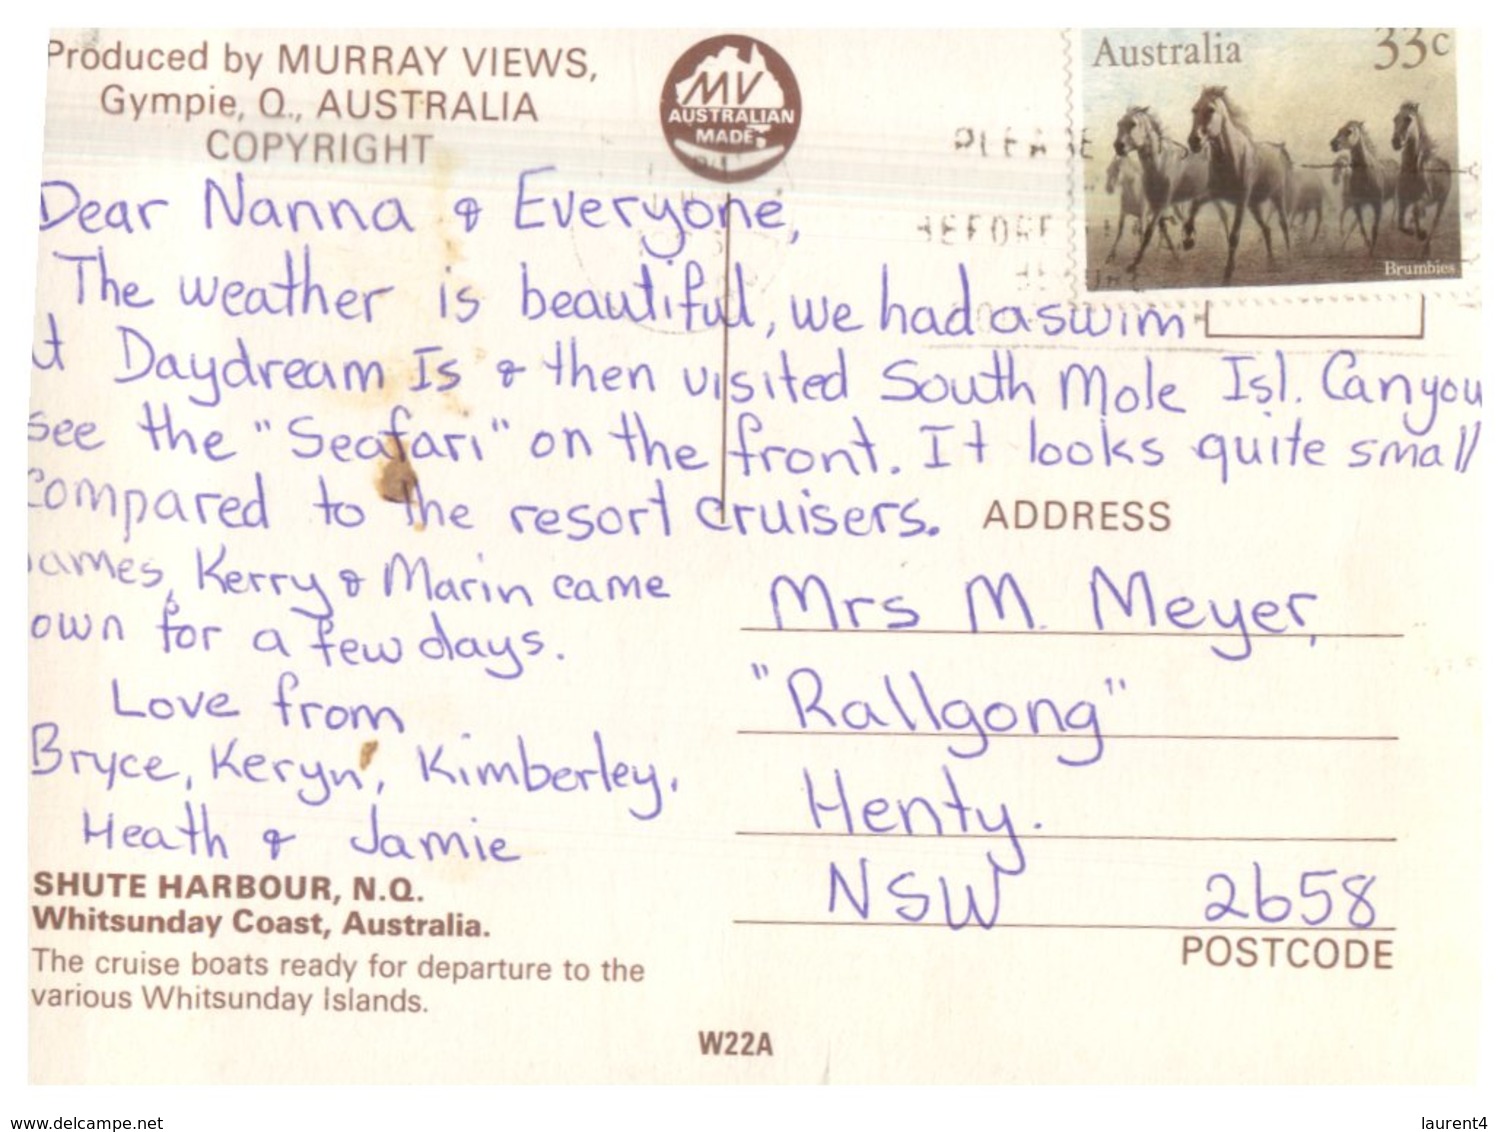 Produced by MURRAY VIEWS,
Gympie, Q., AUSTRALIA
COPYRIGHT
MV
AUSTRALIAN
MADE
Australia 33c
Brumbies
PLEASE
BEFORE
Dear Nanna & Everyone,
The weather is beautiful, we had a swim
t Daydream Is & then visited South Mole Isl. Can you
see the "Seafari" on the front. It looks quite small
compared to the resort cruisers.
ames, Kerry & Marin came
own for a few days.
Love from
Bryce, Keryn, Kimberley,
Heath & Jamie
ADDRESS
Mrs M. Meyer,
"Rallgong"
Henty.
NSW 2658
POSTCODE
SHUTE HARBOUR, N.Q.
Whitsunday Coast, Australia.
The cruise boats ready for departure to the
various Whitsunday Islands.
W22A
www.delcampe.net
laurent4